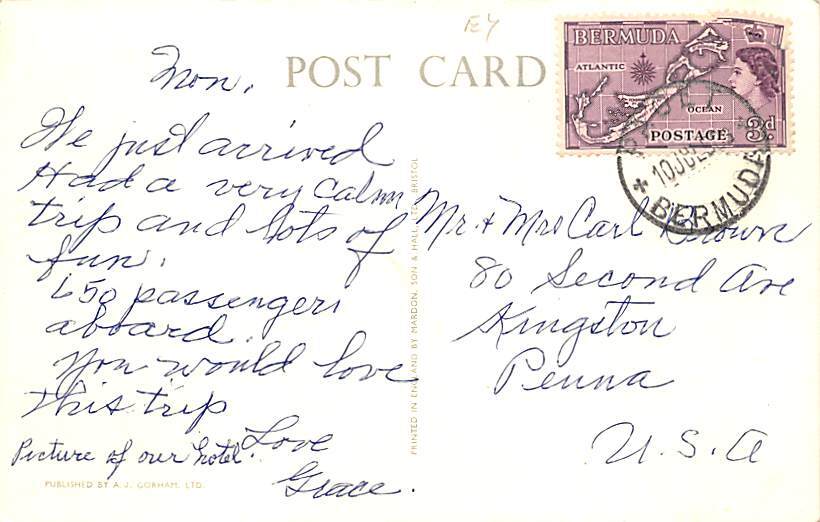 EY
POST CARD
BERMUDA
ATLANTIC
OCEAN
POSTAGE 3d.
BERMUDA
Mon.
We just arrived
Had a very calm
trip and lots of
fun.
650 passengers
aboard.
You would love
this trip
Love
Grace.
Picture of our hotel.
PUBLISHED BY A. J. GORHAM, LTD.
PRINTED IN ENGLAND BY MARDON, SON & HALL, LTD., BRISTOL
Mr. & Mrs Carl Brown
80 Second Ave
Kingston
Penna
U.S.A